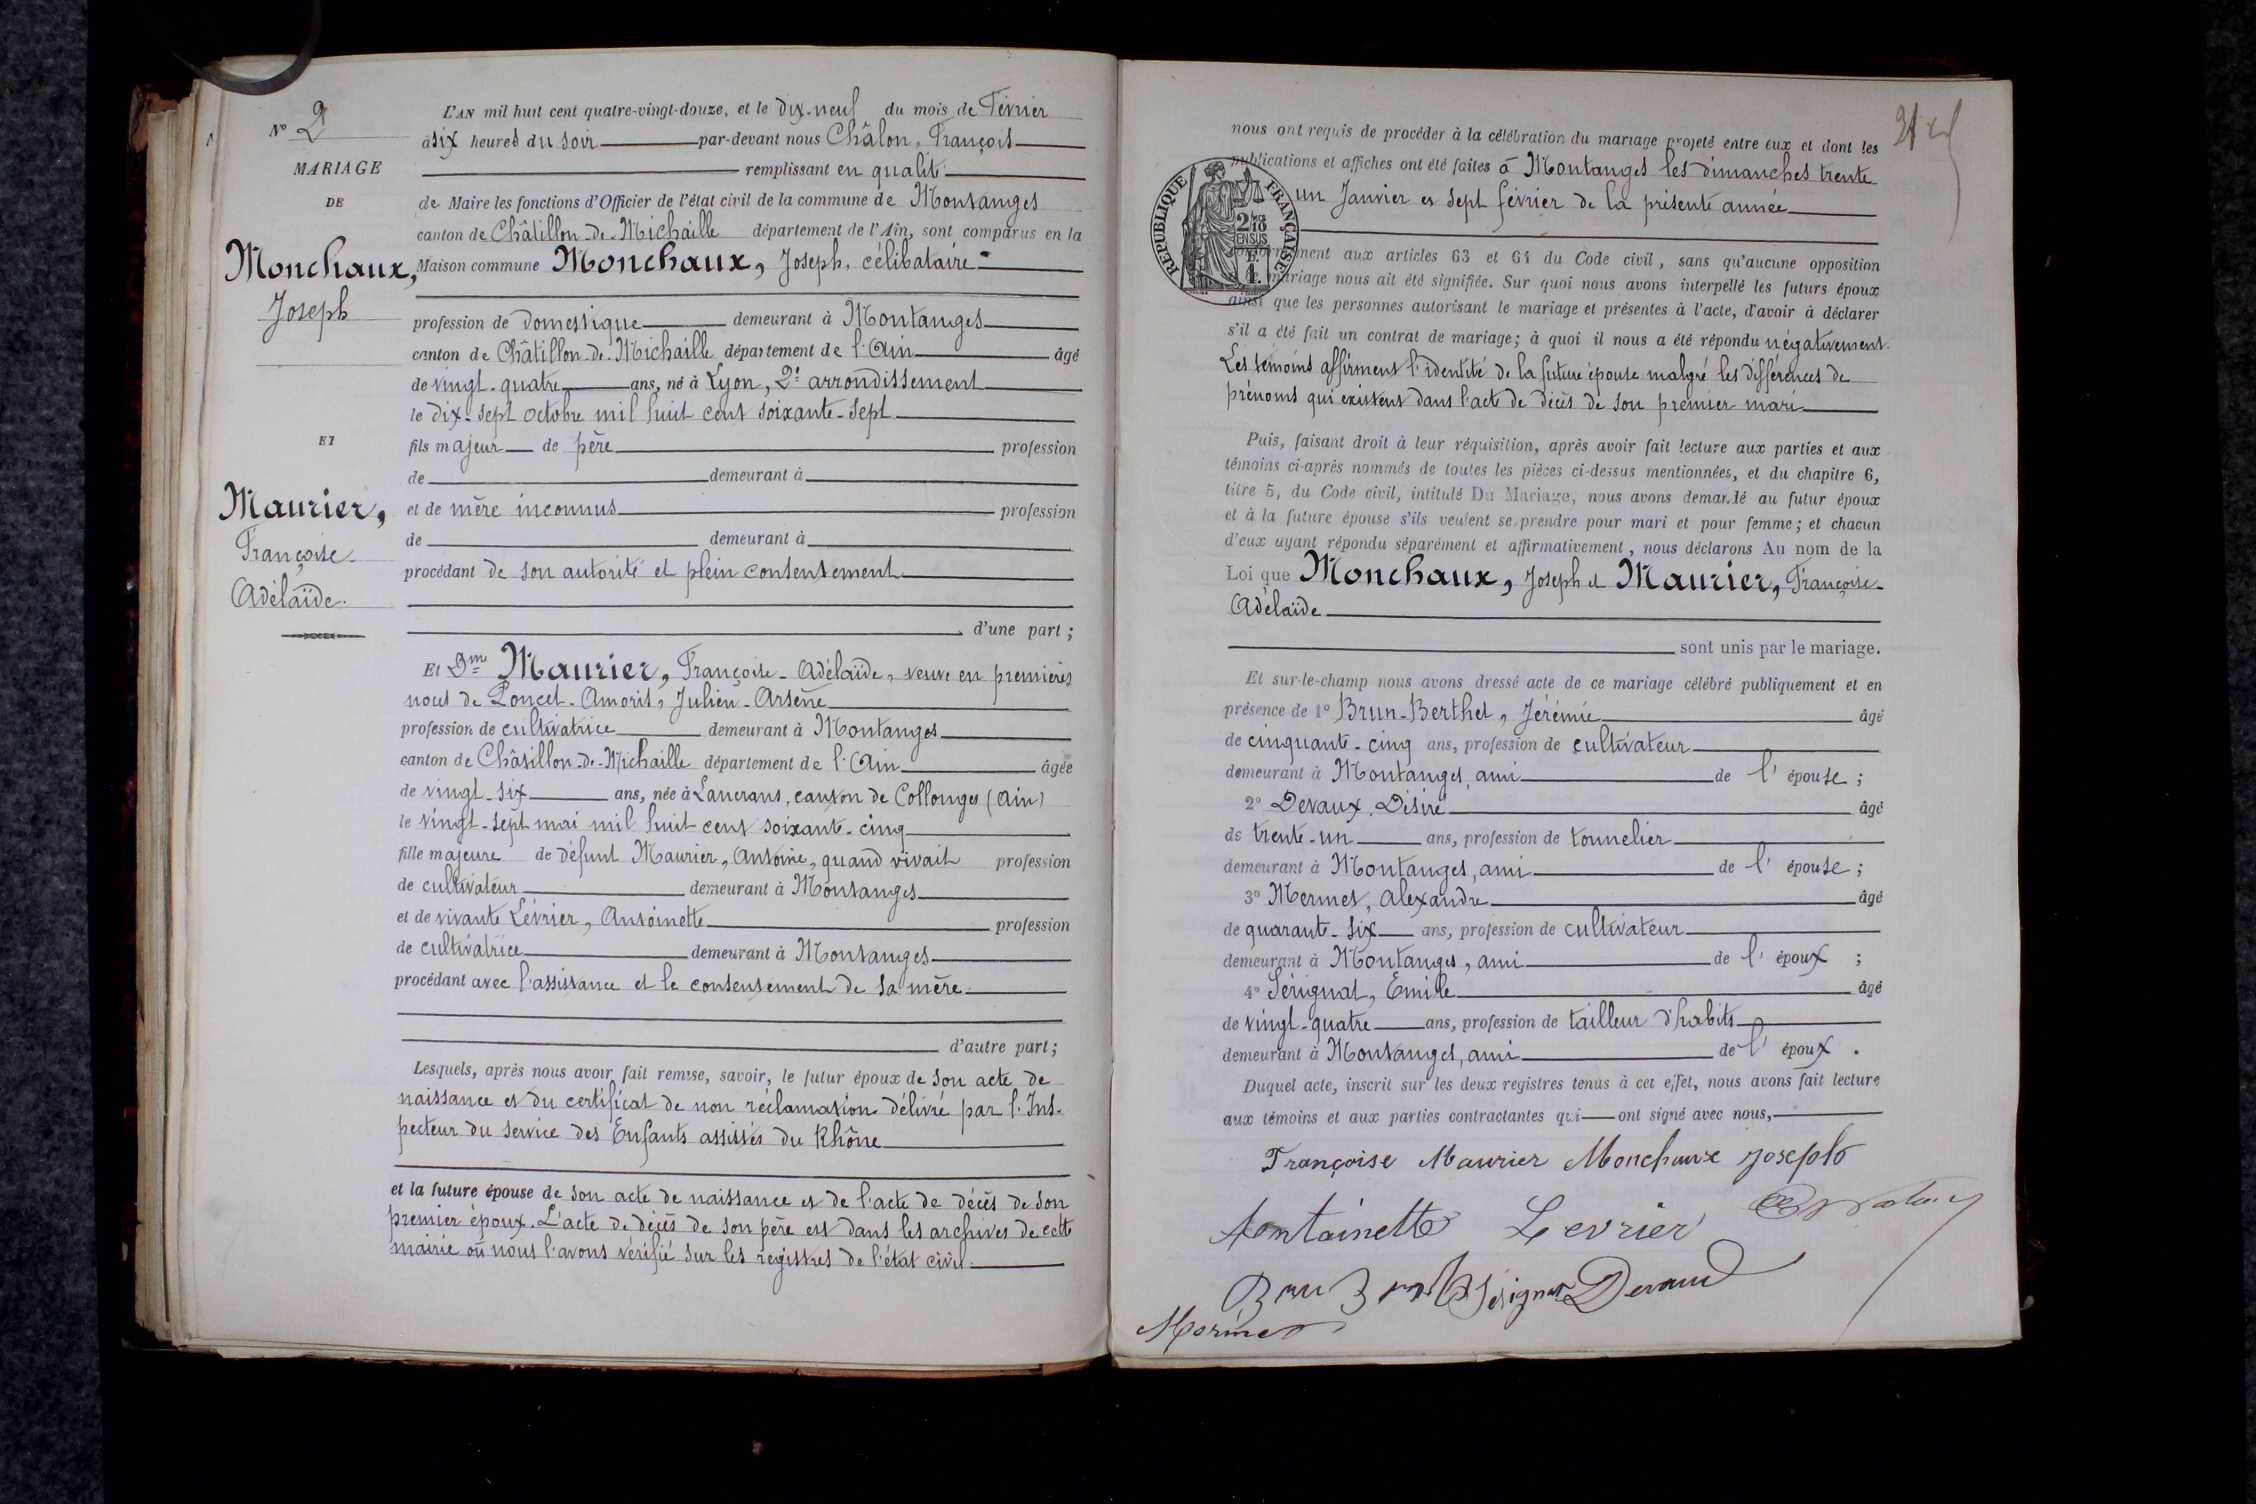 N° 2
MARIAGE
DE
Monchaux,
Joseph
ET
Maurier,
Françoise-
Adélaïde.
L'AN mil huit cent quatre-vingt-douze, et le dix-neuf du mois de Février
à six heures du soir par-devant nous Châlon, François
remplissant en qualité
de Maire les fonctions d'Officier de l'état civil de la commune de Montanges
canton de Châtillon-de-Michaille département de l'Ain, sont comparus en la
Maison commune Monchaux, Joseph, célibataire
profession de domestique demeurant à Montanges
canton de Châtillon-de-Michaille département de l'Ain âgé
de vingt-quatre ans, né à Lyon, 2e arrondissement
le dix-sept octobre mil huit cent soixante-sept
fils majeur de père profession
de demeurant à
et de mère inconnus profession
de demeurant à
procédant de son autorité et plein consentement
d'une part ;
Et Dme Maurier, Françoise-Adélaïde, veuve en premières
noces de Poncet-Amoris, Julien-Arsène
profession de cultivatrice demeurant à Montanges
canton de Châtillon-de-Michaille département de l'Ain âgée
de vingt-six ans, née à Lancrans, canton de Collonges (Ain)
le vingt-sept mai mil huit cent soixante-cinq
fille majeure de défunt Maurier, Antoine, quand vivait profession
de cultivateur demeurant à Montanges
et de vivante Lévrier, Antoinette profession
de cultivatrice demeurant à Montanges
procédant avec l'assistance et le consentement de sa mère
d'autre part ;
Lesquels, après nous avoir fait remise, savoir, le futur époux de son acte de
naissance et du certificat de non réclamation délivré par l'Ins-
pecteur du service des Enfants assistés du Rhône
et la future épouse de son acte de naissance et de l'acte de décès de son
premier époux. L'acte de décès de son père est dans les archives de cette
mairie où nous l'avons vérifié sur les registres de l'état civil.
nous ont requis de procéder à la célébration du mariage projeté entre eux et dont les
publications et affiches ont été faites à Montanges les dimanches trente
un Janvier et sept février de la présente année
REPUBLIQUE FRANÇAISE
2/10
EN SUS
ment aux articles 63 et 64 du Code civil, sans qu'aucune opposition
mariage nous ait été signifiée. Sur quoi nous avons interpellé les futurs époux
ainsi que les personnes autorisant le mariage et présentes à l'acte, d'avoir à déclarer
s'il a été fait un contrat de mariage ; à quoi il nous a été répondu négativement.
Les témoins affirment l'identité de la future épouse malgré les différences de
prénoms qui existent dans l'acte de décès de son premier mari
Puis, faisant droit à leur réquisition, après avoir fait lecture aux parties et aux
témoins ci-après nommés de toutes les pièces ci-dessus mentionnées, et du chapitre 6,
titre 5, du Code civil, intitulé Du Mariage, nous avons demandé au futur époux
et à la future épouse s'ils veulent se prendre pour mari et pour femme ; et chacun
d'eux ayant répondu séparément et affirmativement, nous déclarons Au nom de la
Loi que Monchaux, Joseph et Maurier, Françoise-
Adélaïde
sont unis par le mariage.
Et sur-le-champ nous avons dressé acte de ce mariage célébré publiquement et en
présence de 1° Brun-Berthet, Jérémie âgé
de cinquante-cinq ans, profession de cultivateur
demeurant à Montanges, ami de l'épouse ;
2° Devaux, Désiré âgé
de trente-un ans, profession de tonnelier
demeurant à Montanges, ami de l'épouse ;
3° Mermet, Alexandre âgé
de quarante-six ans, profession de cultivateur
demeurant à Montanges, ami de l'époux ;
4° Sérignat, Emile âgé
de vingt-quatre ans, profession de tailleur d'habits
demeurant à Montanges, ami de l'époux.
Duquel acte, inscrit sur les deux registres tenus à cet effet, nous avons fait lecture
aux témoins et aux parties contractantes qui ont signé avec nous,
Françoise Maurier Monchaux Joseph
Antoinette Levrier
Sérignat Devaux
Mermet